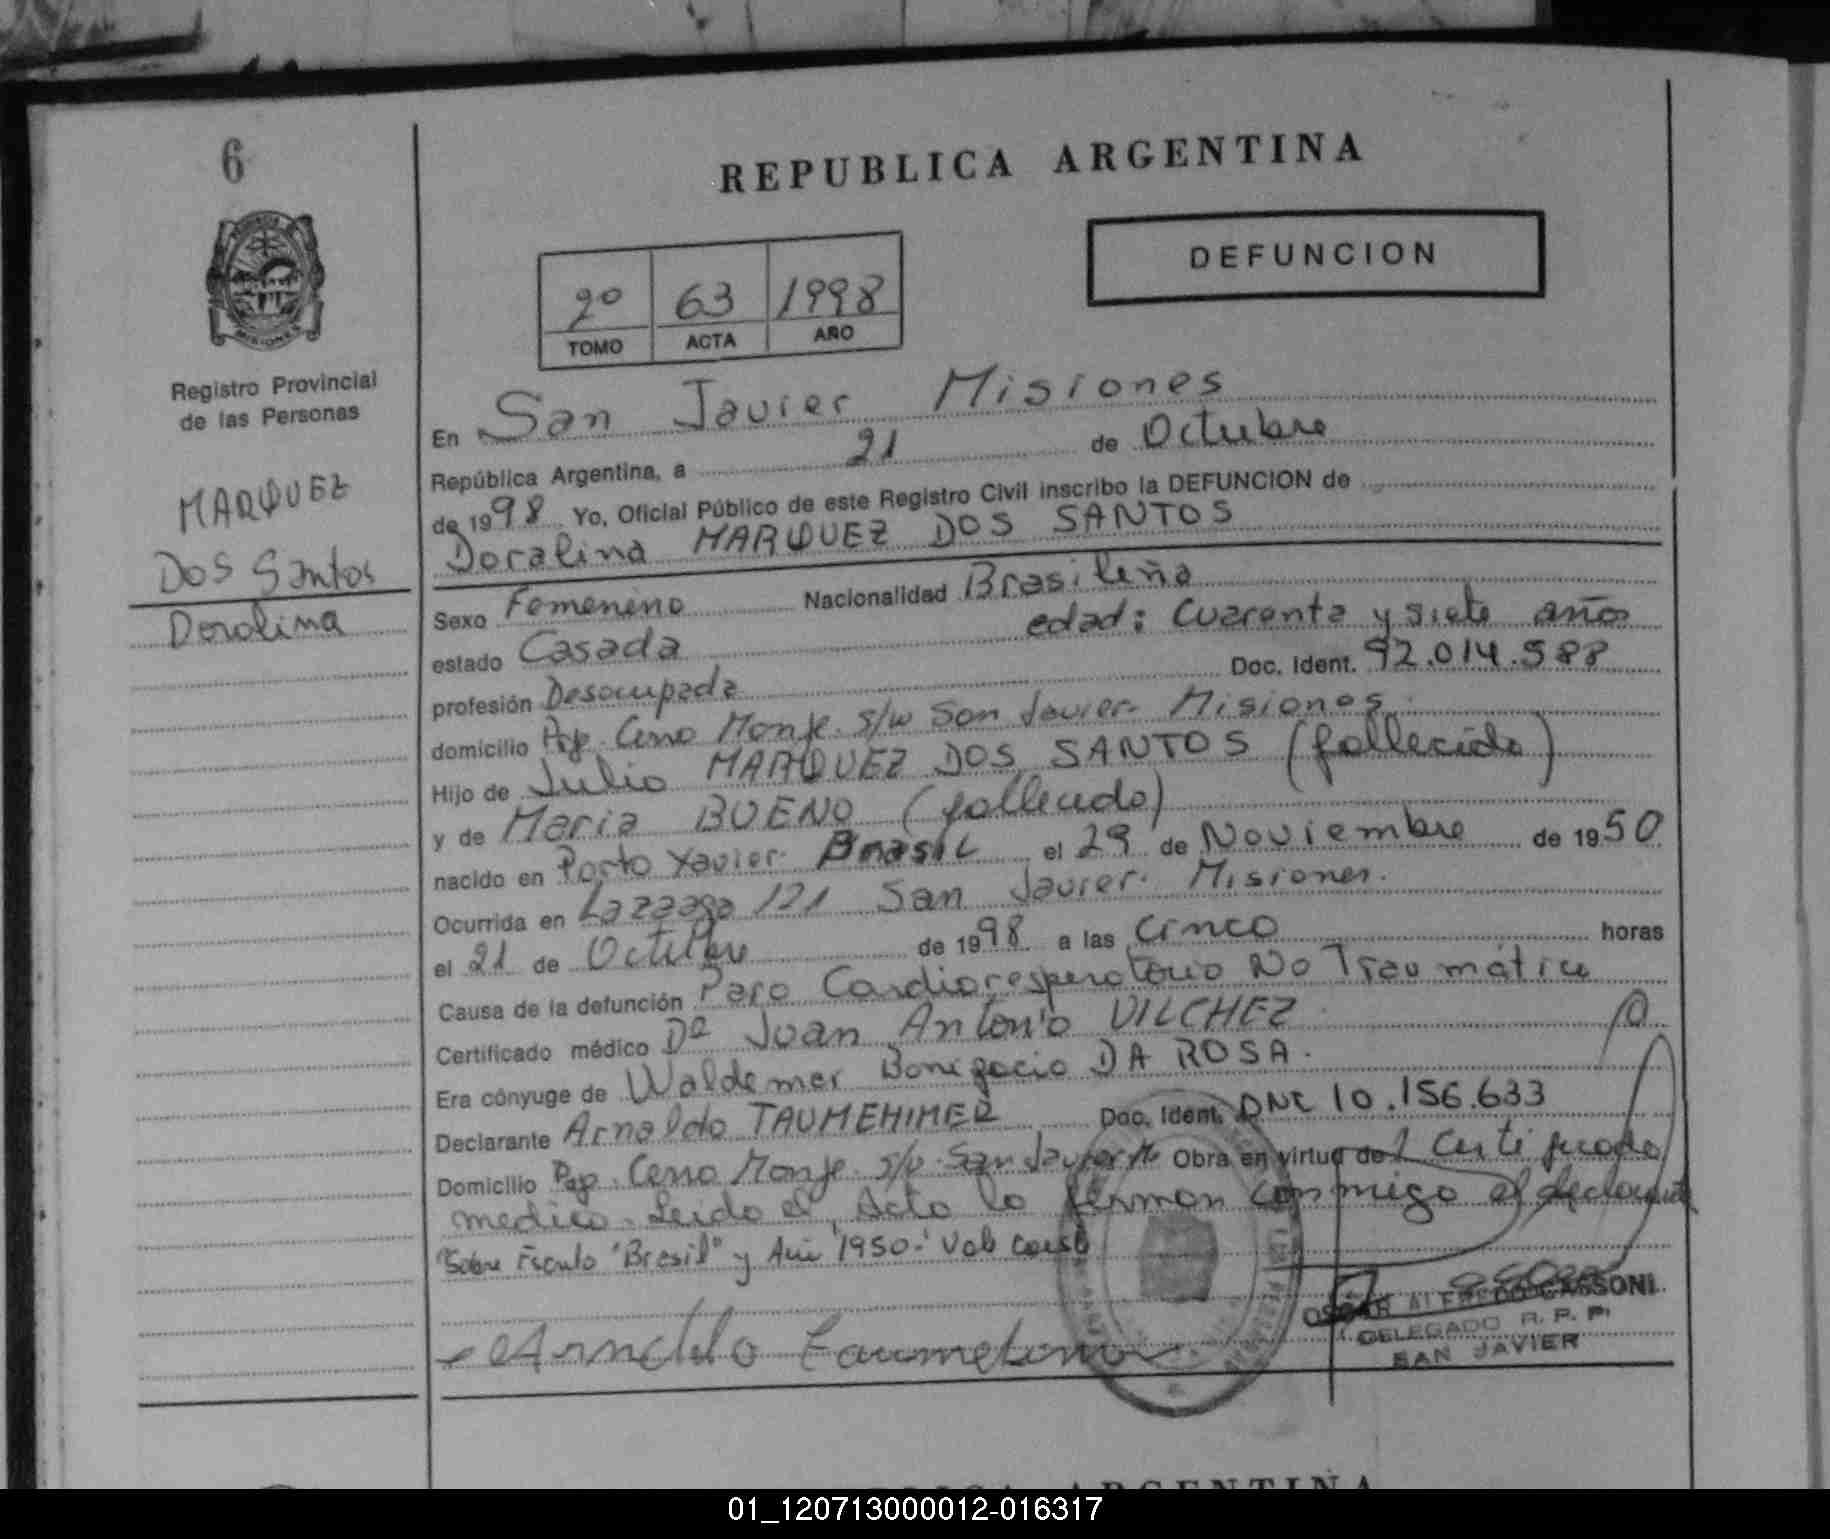 6
REPUBLICA ARGENTINA
DEFUNCION
2º 63 1998
TOMO ACTA AÑO
Registro Provincial
de las Personas
MARQUEZ
Dos Santos
Doralina
En San Javier Misiones
República Argentina, a 21 de Octubre
de 1998 Yo, Oficial Público de este Registro Civil inscribo la DEFUNCION de
Doralina MARQUEZ DOS SANTOS
Sexo Femenino Nacionalidad Brasileña
estado Casada edad: Cuarenta y siete años
profesión Desocupada Doc. Ident. 92.014.588
domicilio Pje. Cerro Monje s/n San Javier. Misiones.
Hijo de Julio MARQUEZ DOS SANTOS (fallecido)
y de Maria BUENO (fallecido)
nacido en Porto Xavier. Brasil el 29 de Noviembre de 1950
Ocurrida en 121 San Javier. Misiones.
el 21 de Octubre de 1998 a las cinco horas
Causa de la defunción Paro Cardiorespiratorio No Traumático
Certificado médico Dr Juan Antonio VILCHEZ
Era cónyuge de Waldemar Bonifacio DA ROSA.
Declarante Arnaldo TAUMEHIMER Doc. Ident. DNI 10.156.633
Domicilio Pje. Cerro Monje s/n San Javier Obra en virtud de Certificado
medico. Leido el Acta lo firman conmigo el declarante
"Sobre Escrito "Brasil" y Año "1950-" Vale
Arnaldo
OSCAR ALFREDO CASSONI
DELEGADO R. P. P.
SAN JAVIER
ARGENTINA
01_120713000012-016317